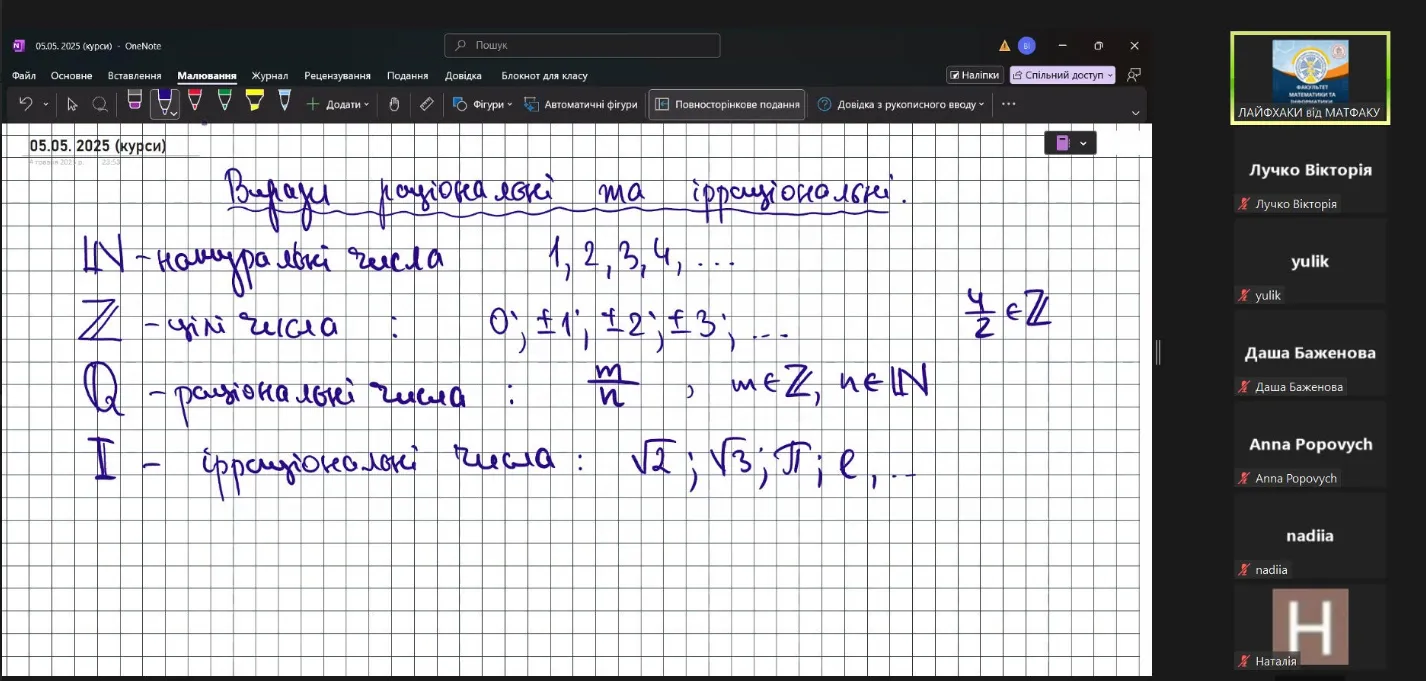 05.05. 2025 (курси) - OneNote
Пошук
ВІ
Файл Основне Вставлення Малювання Журнал Рецензування Подання Довідка Блокнот для класу
Наліпки Спільний доступ
Додати Фігури Автоматичні фігури Повносторінкове подання Довідка з рукописного вводу ...
05.05. 2025 (курси)
Вирази раціональні та ірраціональні.
ℕ - натуральні числа 1, 2, 3, 4, ...
ℤ - цілі числа : 0; ±1; ±2; ±3; ... 4/2 ∈ ℤ
ℚ - раціональні числа : m/n , m∈ℤ, n∈ℕ
I - ірраціональні числа : √2; √3; π; e, ...
ФАКУЛЬТЕТ
МАТЕМАТИКИ ТА
ІНФОРМАТИКИ
ЛАЙФХАКИ від МАТФАКУ
Лучко Вікторія
Лучко Вікторія
yulik
yulik
Даша Баженова
Даша Баженова
Anna Popovych
Anna Popovych
nadiia
nadiia
Н
Наталія